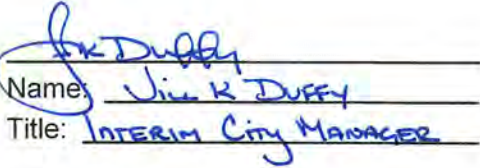 JK Duffy
Name: Jill K Duffy
Title: Interim City Manager